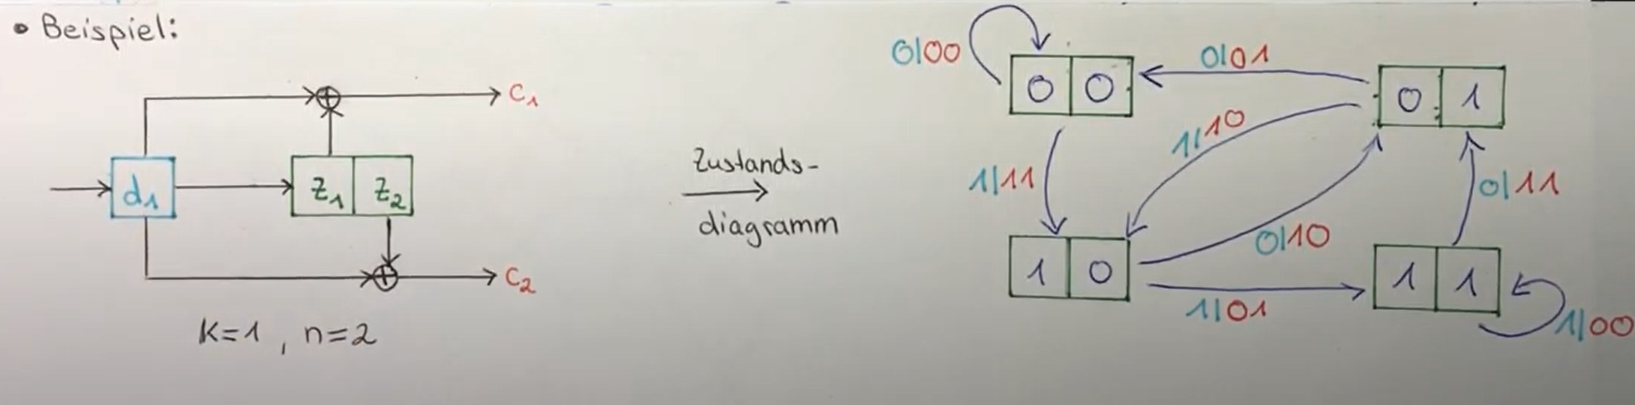 • Beispiel:
d₁
z₁ z₂
c₁
c₂
K=1, n=2
Zustands-
diagramm
0|00
0 0
0|01
0 1
1|10
1|11
0|11
0|10
1 0
1|01
1 1
1|00